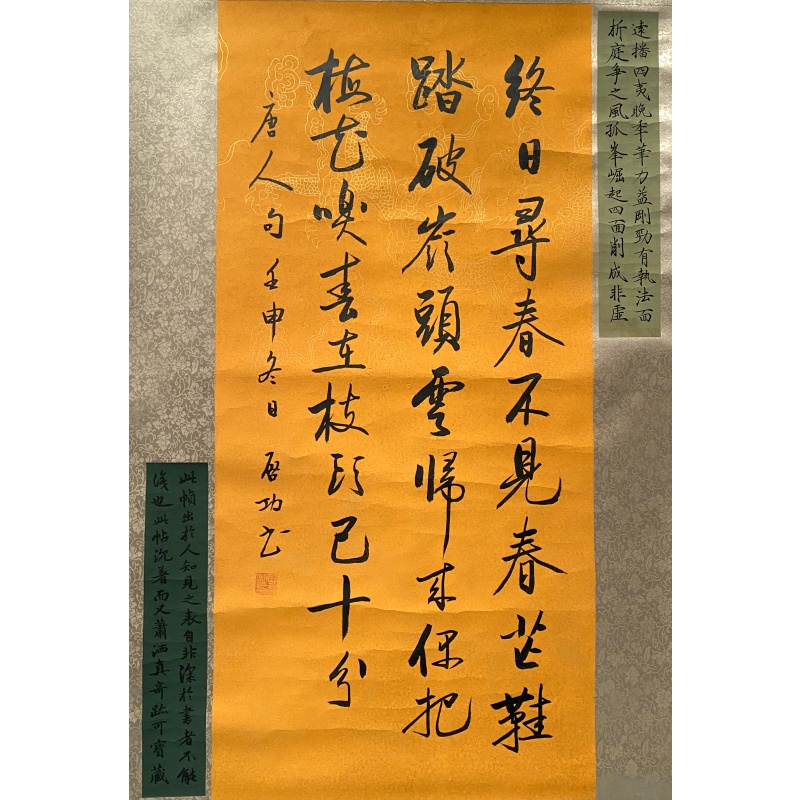 遠播四夷晚年筆力益剛勁有執法面
折庭爭之風孤峯崛起四面削成非虛
終日尋春不見春芒鞋
踏破岺頭雲帰来偶把
梅花嗅春在枝頭已十分
唐人句壬申冬日 啓功書
此幀出於人知見之表自非深於書者不能
識也此帖沉著而又蕭洒真奇跡可寶藏